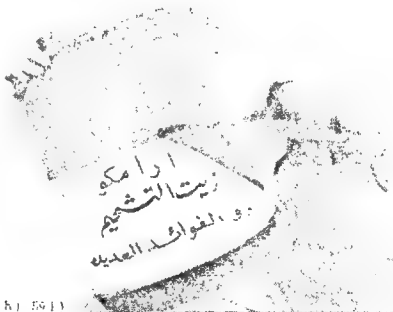 ارامكو
زيت التشحيم
ذو الفوائد العديده